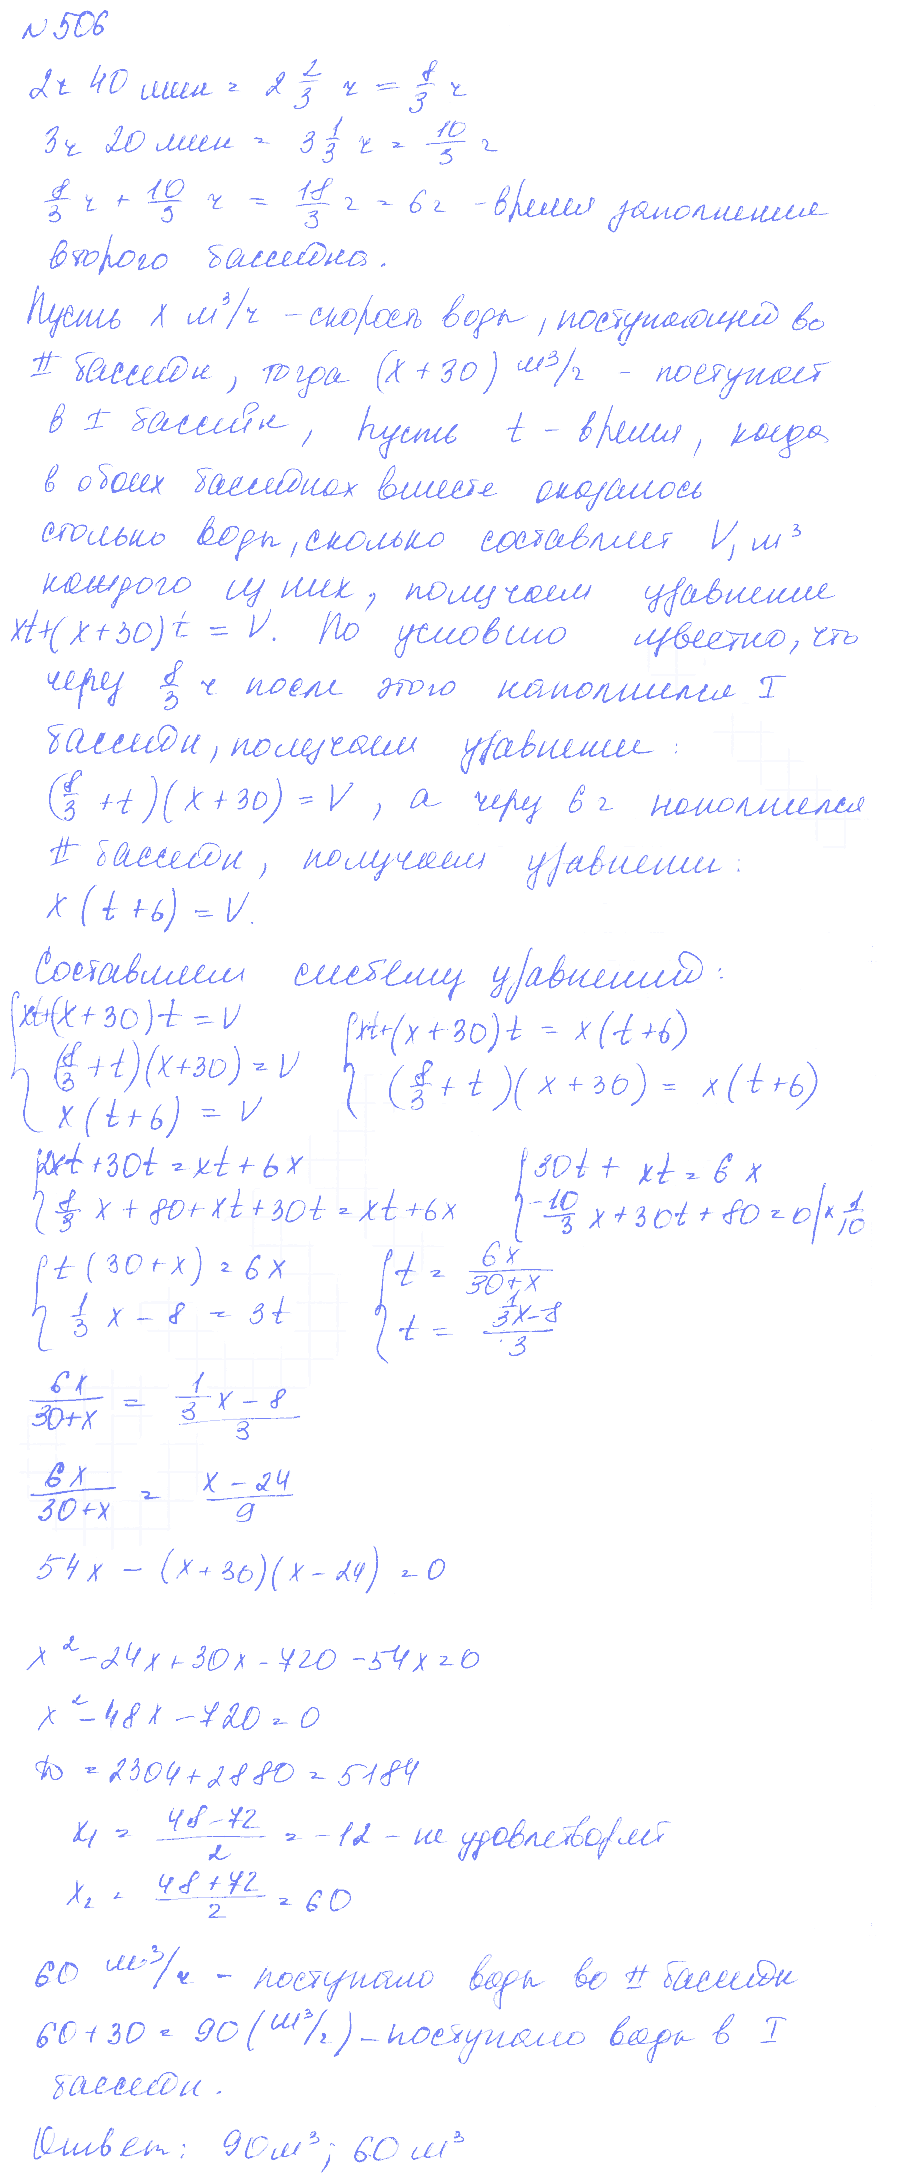 №506
2ч 40 мин = 2 2/3 ч = 8/3 ч
3ч 20 мин = 3 1/3 ч = 10/3 ч
8/3 ч + 10/3 ч = 18/3 ч = 6ч - время заполнения
второго бассейна.
Пусть x м³/ч - скорость воды, поступающей во
II бассейн, тогда (x+30) м³/ч - поступает
в I бассейн, пусть t - время, когда
в обоих бассейнах вместе оказалось
столько воды, сколько составляет V, м³
каждого из них, получаем уравнение
xt+(x+30)t = V. По условию известно, что
через 8/3 ч после этого наполнился I
бассейн, получаем уравнение:
(8/3 + t)(x+30) = V, а через 6ч наполнился
II бассейн, получаем уравнение:
x(t+6) = V.
Составляем систему уравнений:
{ xt+(x+30)t = V
(8/3 + t)(x+30) = V
x(t+6) = V
{ xt+(x+30)t = x(t+6)
(8/3 + t)(x+30) = x(t+6)
{ 2xt+30t = xt+6x
8/3 x + 80 + xt + 30t = xt+6x
{ 30t + xt = 6x
-10/3 x + 30t + 80 = 0 |× 1/10
{ t(30+x) = 6x
1/3 x - 8 = 3t
{ t = 6x/(30+x)
t = (1/3 x - 8)/3
6x/(30+x) = (1/3 x - 8)/3
6x/(30+x) = (x-24)/9
54x - (x+30)(x-24) = 0
x² - 24x + 30x - 720 - 54x = 0
x² - 48x - 720 = 0
D = 2304+2880 = 5184
x₁ = (48-72)/2 = -12 - не удовлетворяет
x₂ = (48+72)/2 = 60
60 м³/ч - поступало воды во II бассейн
60+30 = 90 (м³/ч) - поступало воды в I
бассейн.
Ответ: 90м³; 60м³